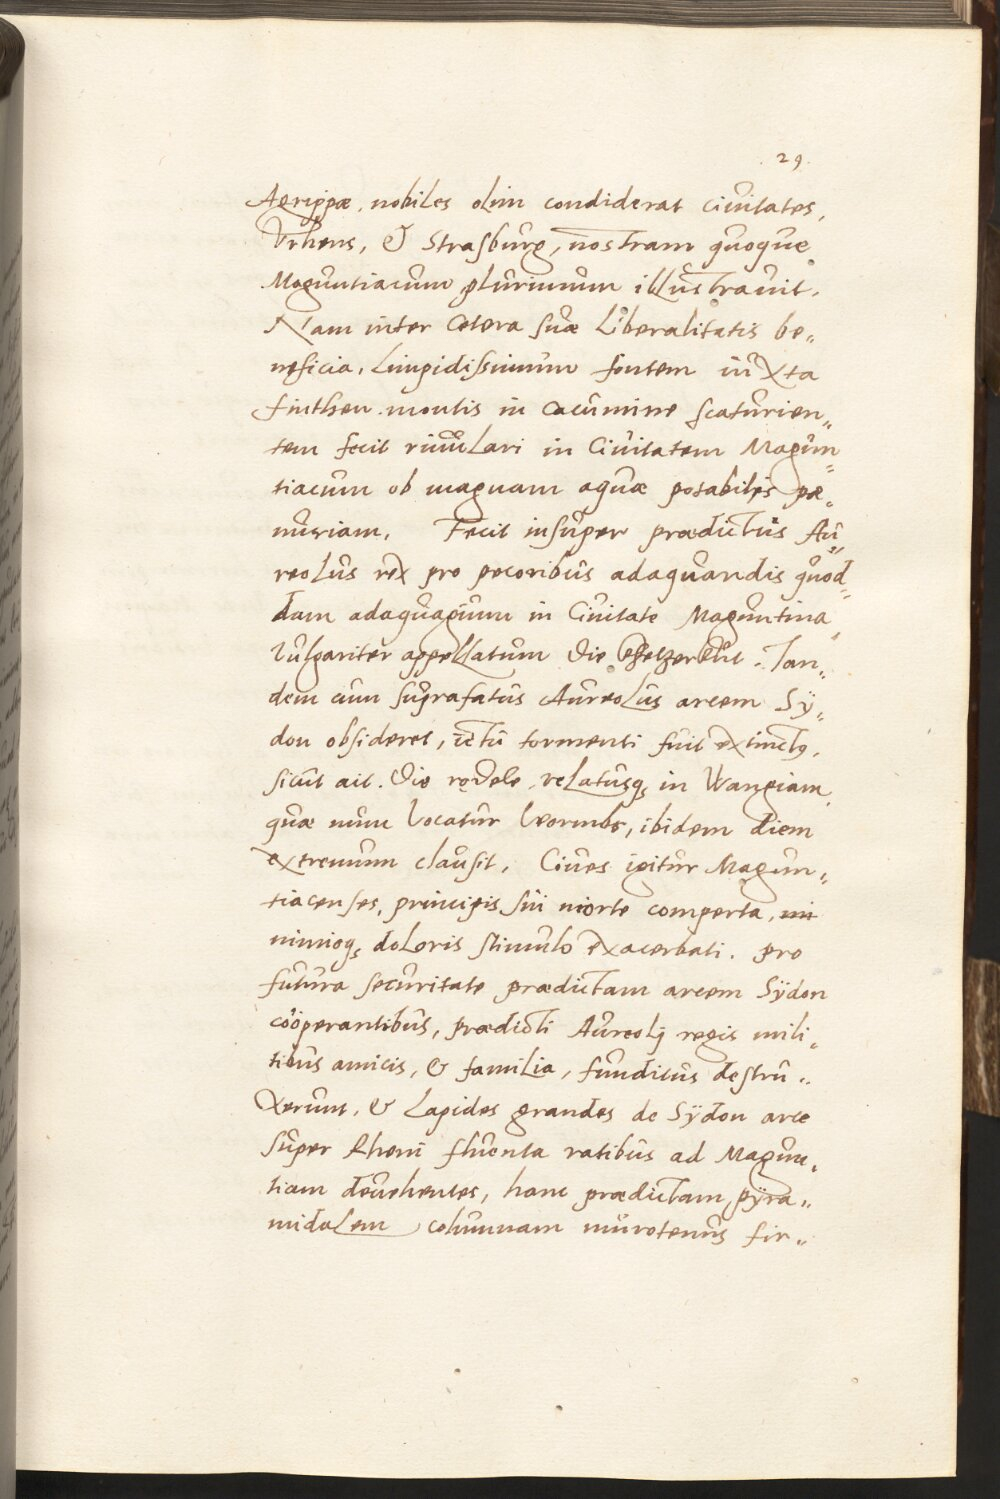 29.
Agrippæ, nobiles olim condiderat ciuitates,
Vrhens, & Strasburg, nostram quoque
Moguntiacum plurimum illustrauit.
Nam inter cetera suæ liberalitatis be„
neficia, limpidissimum fontem iuxta
finthen montis in cacumine scaturien„
tem fecit riuulari in Ciuitatem Magun„
tiacum ob magnam aquæ potabilis pæ„
nuriam. Fecit insuper prædictus Au„
reolus rex pro pecoribus adaquandis quod„
dam adaquagium in Ciuitate Maguntina
Vulgariter appellatum die . Tan„
dem cum suprafatus Aureolus arcem Sÿ„
don obsideret, ictu tormenti fuit extinctꝯ,
sicut ait. die redele, relatusqꝫ in Wangiam,
quæ nunc Vocatur Vvormbs, ibidem diem
extremum clausit. Ciues igitur Magun„
tiacenses, principis sui morte comperta, ni
nimioqꝫ doloris stimulo exacerbati. pro
futura securitate prædictam arcem Sÿdon
coöperantibus, prædicti Aureolj regis mili„
tibus amicis, & familia, funditus destru„
xerunt, & lapides grandes de Sÿdon arce
super Rheni fluenta ratibus ad Magun„
tiam deuehentes, hanc prædictam pÿra„
midalem columnam murotenus fir„